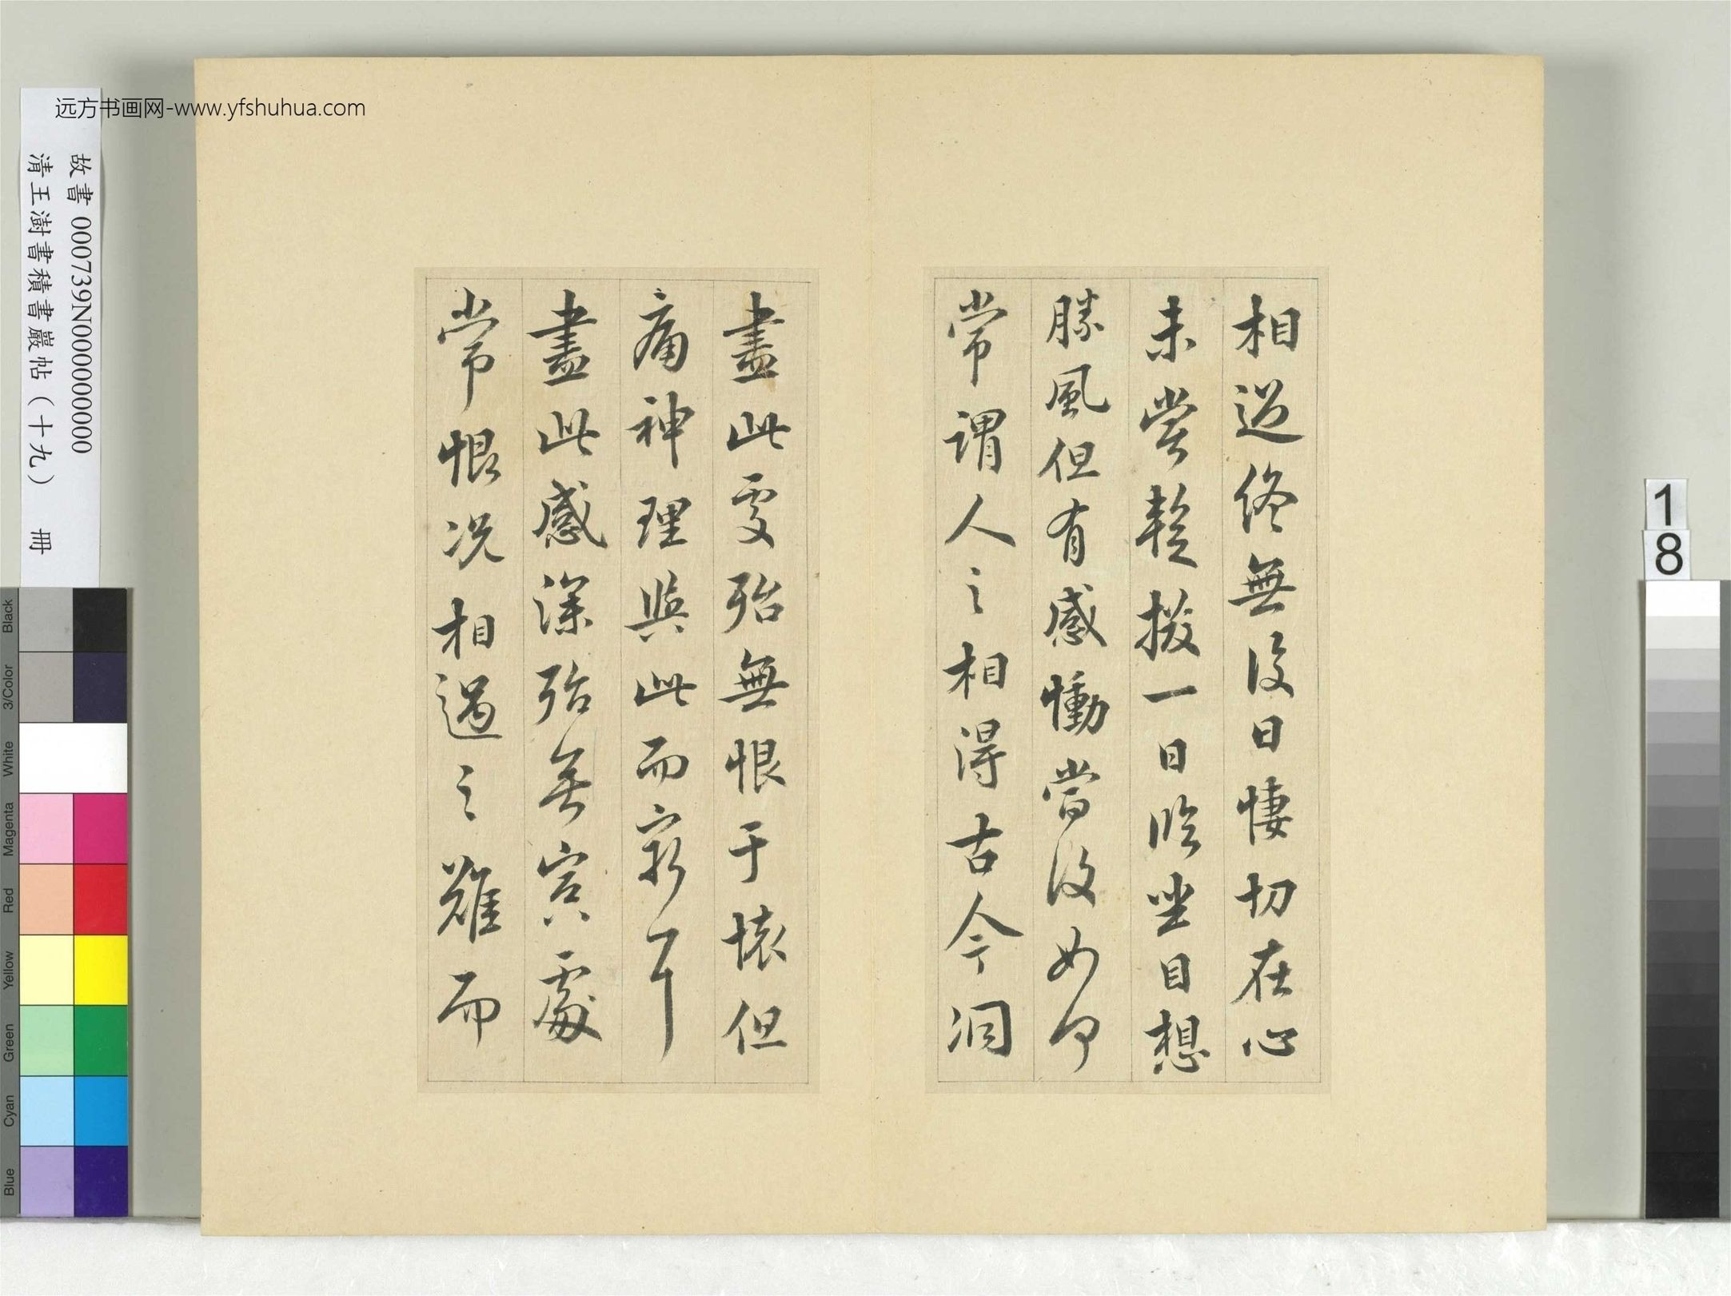 远方书画网-www.yfshuhua.com
故書 000739N000000000
清王澍書積書巖帖（十九） 冊
相過終無復日悽切在心
未嘗蹔撥一日臨坐目想
勝風但有感慟當復如何
常謂人之相得古今洞
盡此處殆無恨于懷但
痛神理與此而窮耳
盡此感深殆無冥處
常恨况相遇之難而
1
8
Black
3/Color
White
Magenta
Red
Yellow
Green
Cyan
Blue